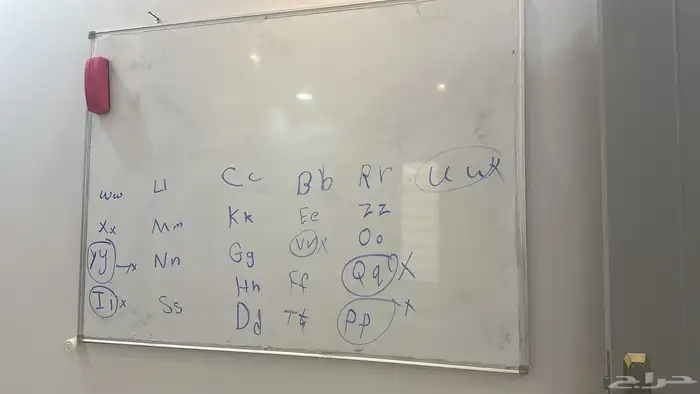 Ww Ll Cc Bb Rr Uu x
Xx Mm Kk Ee Zz
Yy x Nn Gg Vv x Oo
Ii x Ss Hh Ff Qq x
Dd Tt Pp x
حراج